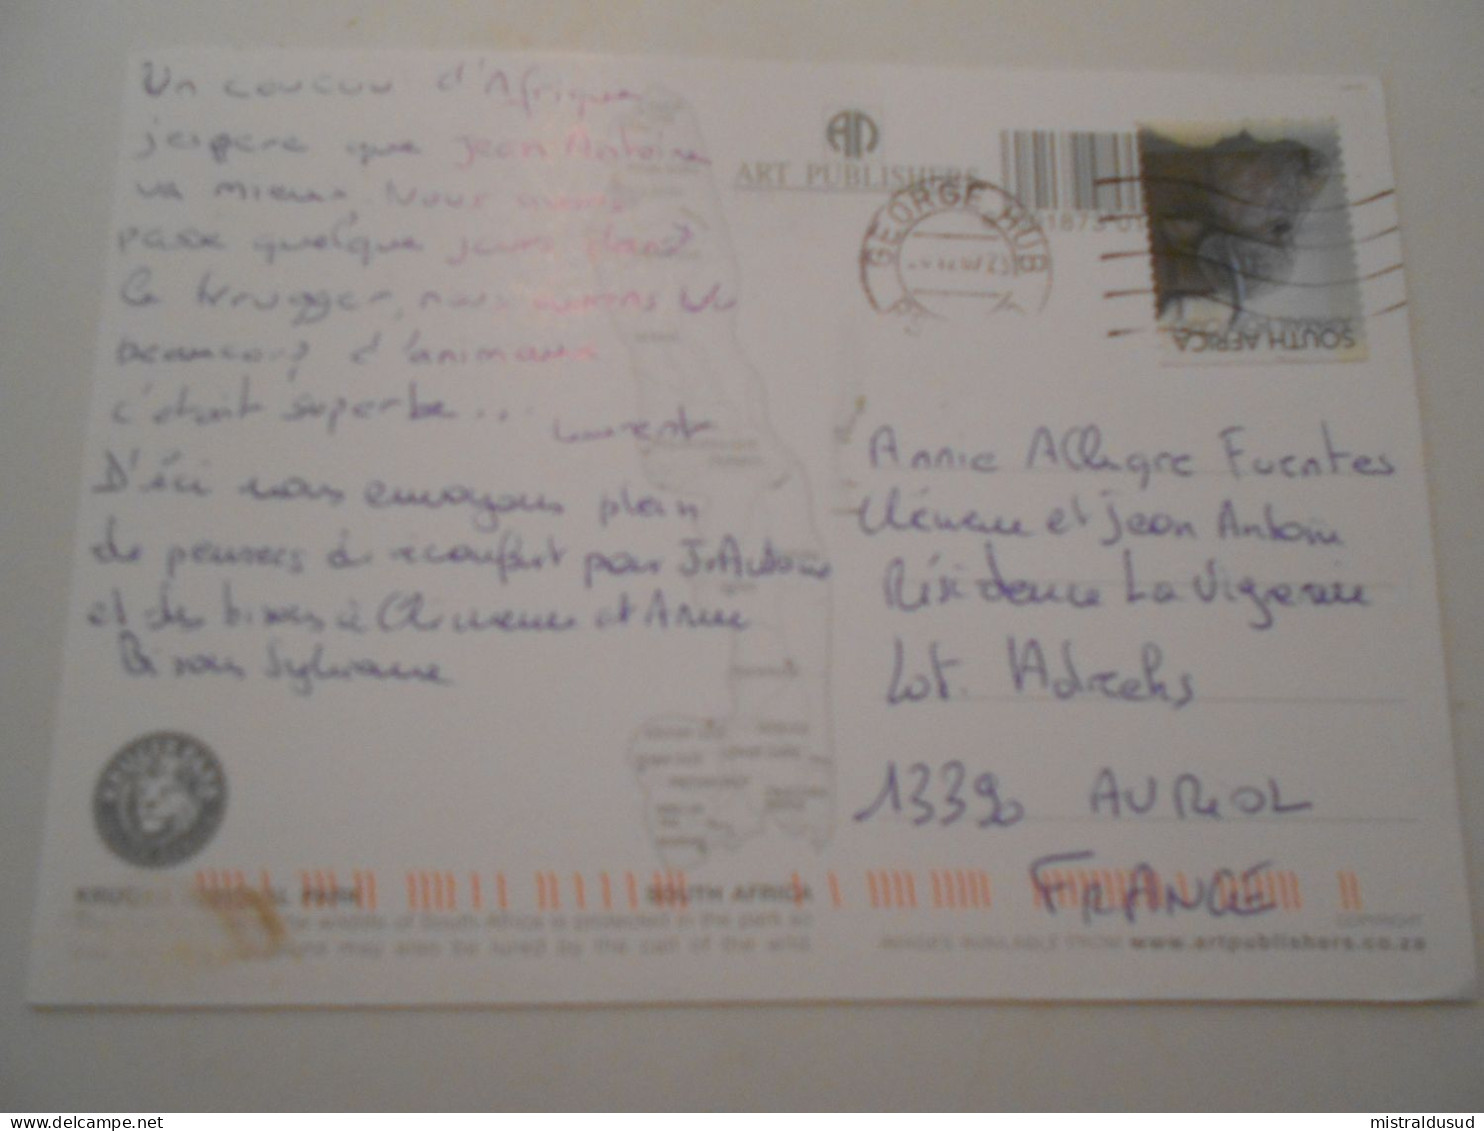 Un coucou d'Afrique
j'espere que Jean Antoine
va mieux. Nous avons
passe quelque jours dans
le Krugger, nous avons vu
beaucoup d'animaux
c'etait superbe...
Laurent
D'ici nous envoyons plein
de pensées de réconfort pour J. Antoine
et des bises à Clémence et Annie
Bisous Sylviane
ART PUBLISHERS
GEORGE HUB
SOUTH AFRICA
Annie Allegre Fuentes
Clémence et Jean Antoine
Résidence La Vigerie
Lot. Adrechs
13390 AURIOL
FRANCE
PARK
SOUTH AFRICA
wildlife of South Africa is protected in the park so
may also be lured by the call of the wild
COPYRIGHT
IMAGES AVAILABLE FROM www.artpublishers.co.za
mistraldusud